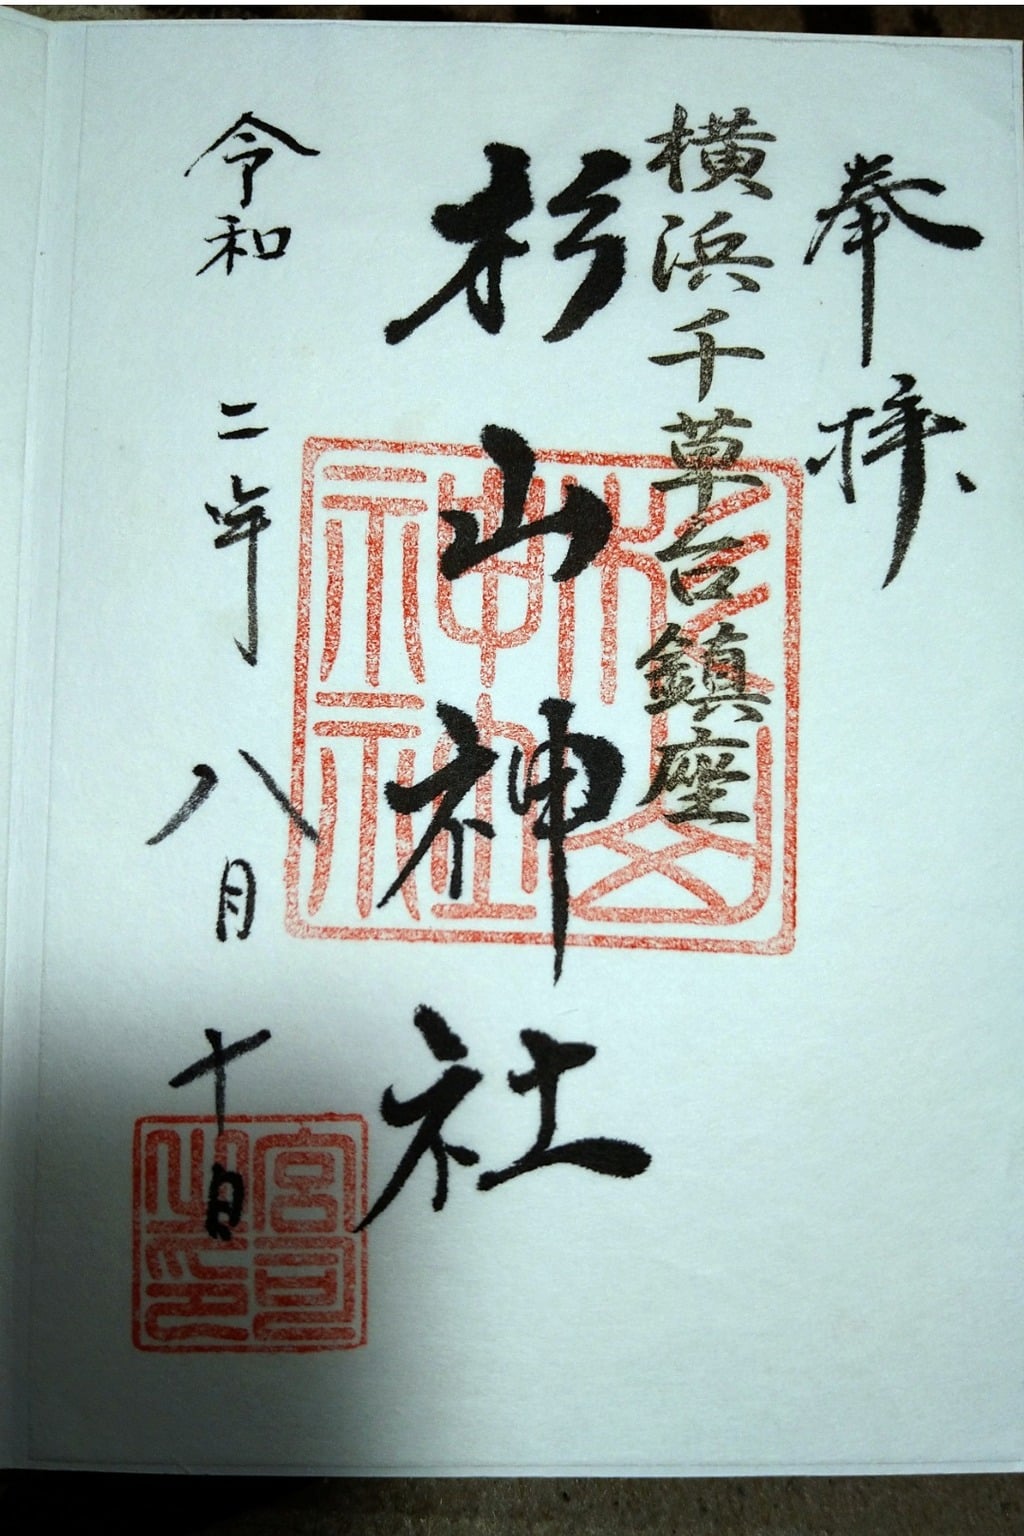 奉拝
横浜千草台鎮座
杉山神社
令和二年八月十日
杉山神社
宮司之印